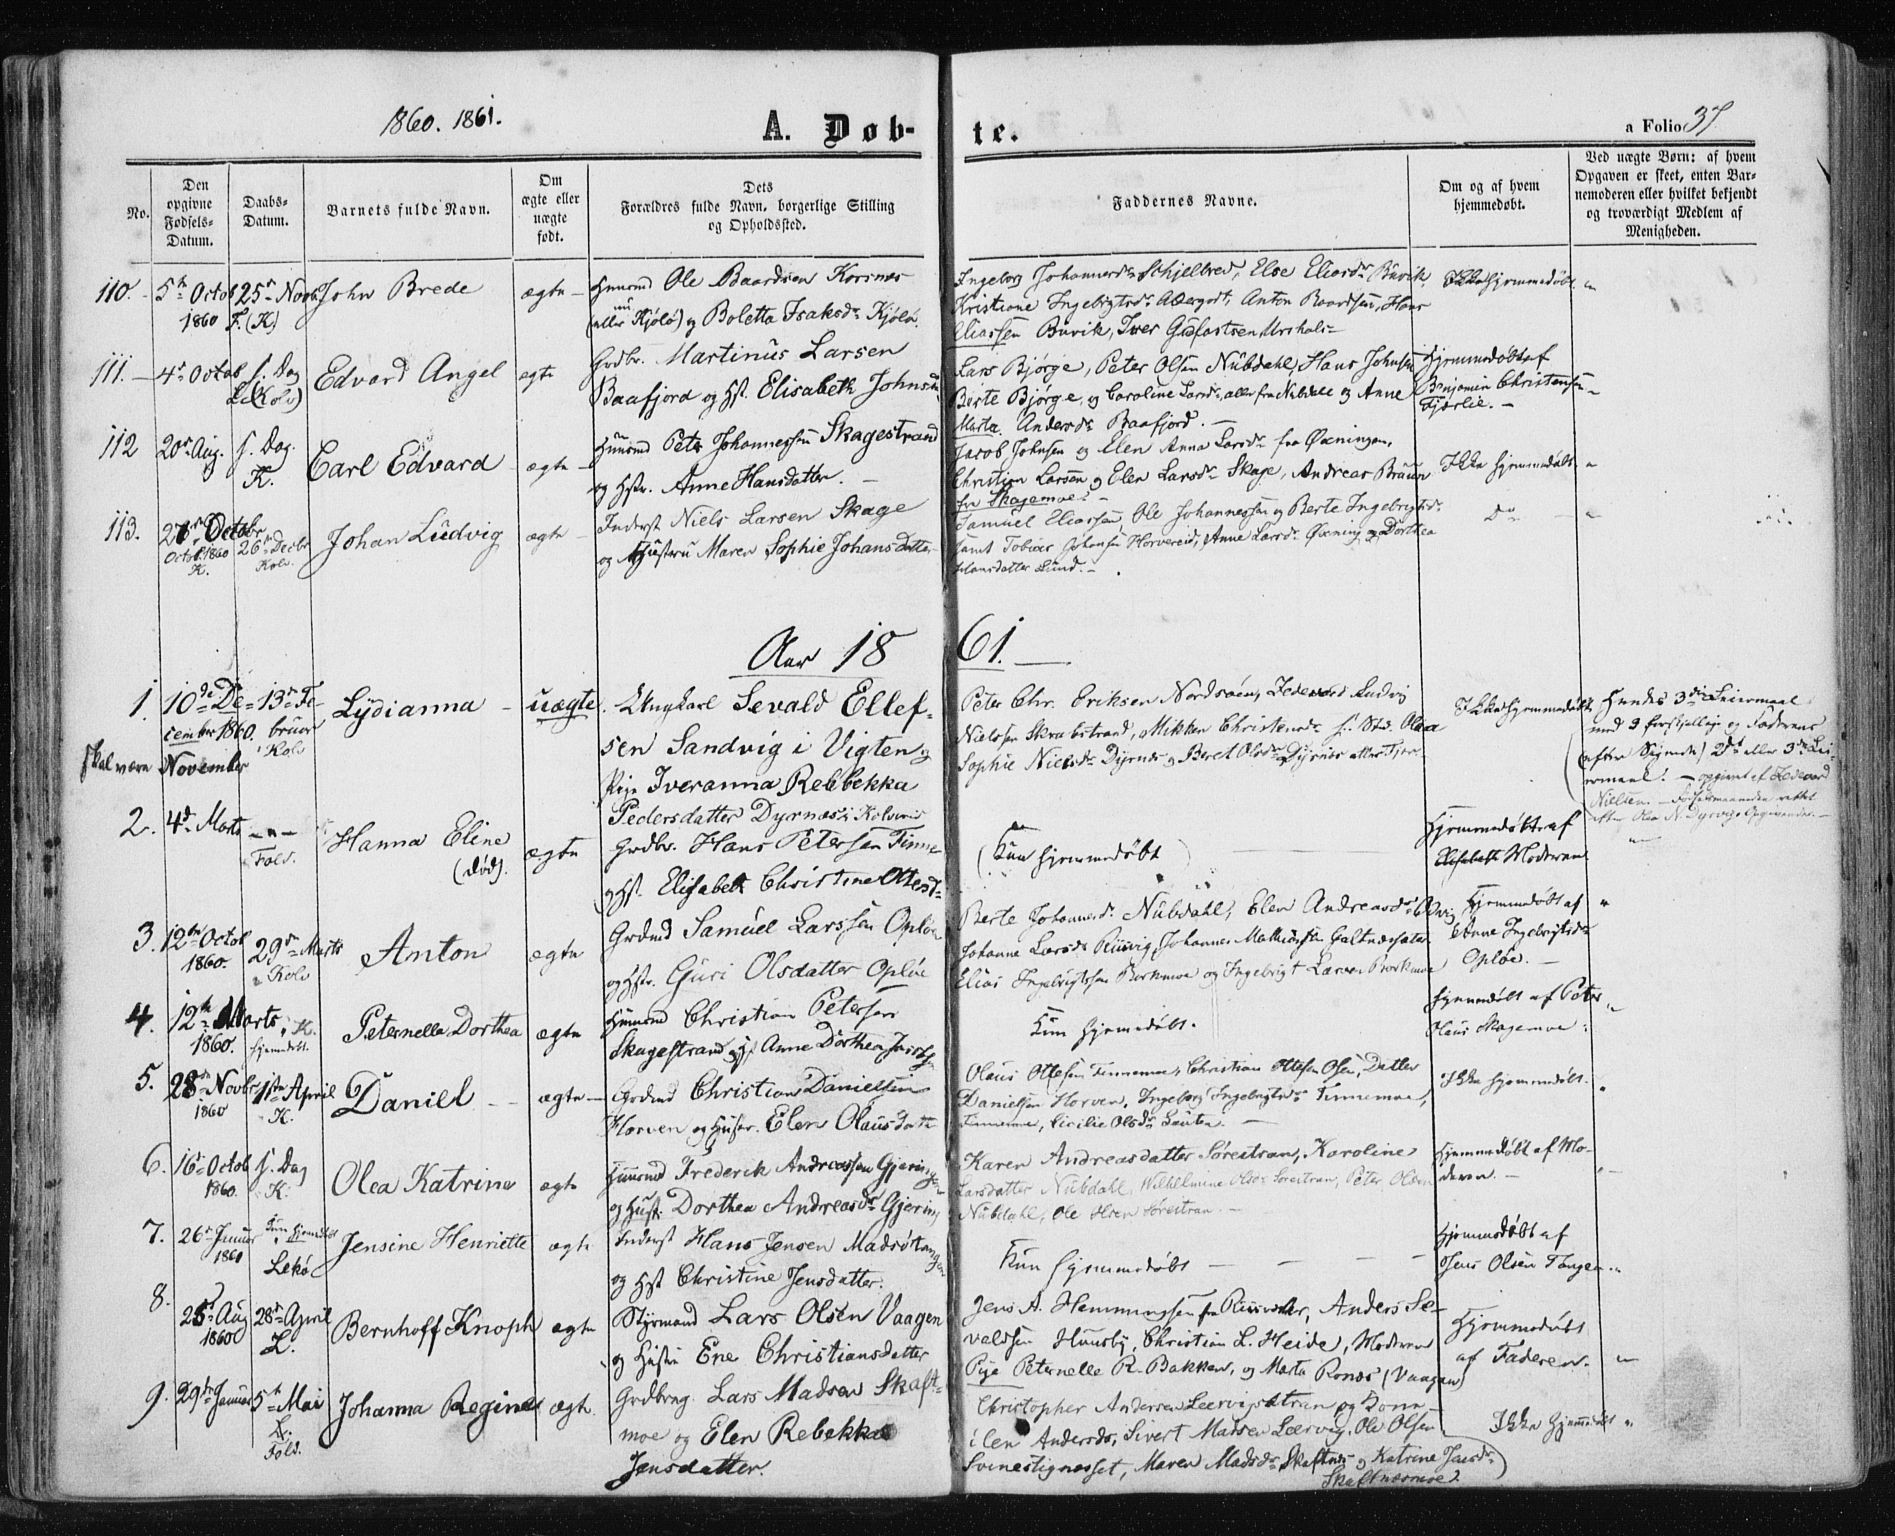 1860. 1861.
A. Døb-
te.
a Folio 37
No.
Den opgivne Fødsels-Datum.
Daabs-Datum.
Barnets fulde Navn.
Om ægte eller uægte født.
Dets Forældres fulde Navn, borgerlige Stilling og Opholdssted.
Faddernes Navne.
Om og af hvem hjemmedøbt.
Ved uægte Børn: af hvem Opgaven er skeet, enten Barnemoderen eller hvilket bekjendt og troværdigt Medlem af Menigheden.
110. 5te Octob 1860 25de Novb F. (K) John Brede ægte
Huusmd Ole Baardsen Korsnæs
(eller Kjölö) og Boletta Isaksdr Kjölö.
Ingeborg Johannesdr Schjelbred, Else Eliasdr Buvik,
Kristiane Ingebrigtsdr, Anton Baardsen, Hans
Eliassen Buvik, Iver
Ikke hjemmedøbt
111. 4de Octob s. Dag (Kolv) Edvard Angel ægte
Grdbr. Martinus Larsen
Baafjord og Hst. Elisabeth Johnsdr
Lars Bjørge, Peter Olsen Nubdahl, Hans Johnsen
Berte Bjørge, og Caroline Larsdr, alle fra Nubdale og Anne
Marta Andersdr Baafjord.
Hjemmedøbt af
Benjamin Christensen
Fjærlie.
112 20de Aug. s. Dag. K. Carl Edvard ægte
Huusmd Peter Johannessen Skagestrand
og Hstr. Anne Hansdatter.
Jacob Johnsen og Elen Anna Larsdr fra Øxningen,
Christian Larsen og Elen Larsdr Skage, Andreas Bruun
fra Skagemoe.
Ikke hjemmedøbt
113. 27de Octobr Octob 1860 K. 26de Decbr Kolv. Johan Ludvig ægte
Inderst Niels Larsen Skage
og Hustru Maren Sophie Johansdatter
Samuel Eliassen, Ole Johannessen og Berte Ingebrigtsdr
samt Tobias Johansen Horvereid, Anne Larsdr Øxning og Dorthea
Hansdatter Lund.
Do
Aar 1861.
1. 10de December 1860. 13de Februar Kolv Lydianna uægte
skal være November
Ungkarl Sevald Ellef-
sen Sandvig i Vigten og
Pige Iveranna Rebbekka
Pedersdatter Dyrnæs i Kolvereid
Peter Chr. Eriksen Nordsöen, Ludvig
Nielssen Skrabstrand, Mikken Christensdr Olea
Sophie Nielsdr Dyrnæs og Beret Olsdr Dyrnæs
Ikke hjemmedøbt
Hendes 3die Leiermaal
med 2 forskjellige og Faderens
(efter Sigende) 2det eller 3die Lei-
ermaal. — opgivet af
Nielsen.
2. 4de Marts Fold. Hanna Eline (død). ægte
Grdbr. Hans Petersen Finne
og Hst. Elisabeth Christine Ottesdr
(Kun hjemmedøbt)
Hjemmedøbt af
Elisabeth Moderen
3. 12te Octob 1860. 29de Marts Kolv Anton ægte
Grdmd Samuel Larssen Opløe
og Hstr. Guri Olsdatter Opløe
Berte Johannesdr Nubdahl, Elen Andreasdr
Johanne Larsdr Rusvig, Johannes Mathiassen
Elias Ingebrigtssen Borkmoe og Ingebrigt Larsen Borkmoe
Hjemmedøbt af
Anne Ingebrigtsdr
Opløe.
4. 12te Marts 1860. K. hjemmedøbt. Peternella Dorthea ægte
Huusmd Christian Petersen
Skagestrand og Hst Anne Dorthea
Kun hjemmedøbt.
Hjemmedøbt af Peter
Olaus Skagemoe
5. 28de Novbr 1860 1ste April K. Daniel ægte
Grdmd Christian Danielsen
Horven og Hustr. Elen Olausdatter
Olaus Ottesen Finnemoe, Christian Ottesen Osen, Detlev
Danielsen Horven, Ingeborg Ingebrigtsdr Finnemoe,
Finnemoe, Cicilie Olsdr
Ikke hjemmedøbt.
6. 16de Octob 1860. s. Dag K. Olea Katrine ægte
Huusmd Frederik Andreassen Gjeringen
og Hustr. Dorthea Andreasdr Gjering
Karen Andreasdatter Sørestran, Karoline
Larsdatter Nubdahl, Wilhelmine Olsdr Sørestran, Peter Olsen
Nubdahl, Ole Sørestran.
Hjemmedøbt af Mo-
deren.
7. 26de Januar 1860 Kun hjemmedøbt Lekø Jensine Henriette ægte
Inderst Hans Jensen Madsøtangen
og Hst Christine Jensdatter.
Kun hjemmedøbt
Hjemmedøbt af
Jens Olsen Tangen
8. 25de Aug 1860 28de April L. Bernhoff Knoph ægte
Styrmand Lars Olsen Vaagen
og Hustru Ene Christiansdatter
Jens A. Hemmingsen fra, Anders Se-
valdsen Huusby, Christian L. Heide, Moderen
Pige Peternelle R. Bakken, og Marta Ronæs (Vaagen)
Hjemmedøbt
af Faderen.
9. 29de Januar 5te Mai L. Fold. Johanna Regine ægte
Grdbrug. Lars Madsen Skaft-
moe og Elen Rebekka
Jensdatter.
Christopher Andersen Leervigstran og Kone
Elen Andersdr, Sivert Madsen Leervig, Ole Olsen
Svinestignesset, Maren Madsdr Skaftnæs og Katrine Jensdr
Skaftnæsmoe).
Ikke hjemmedøbt